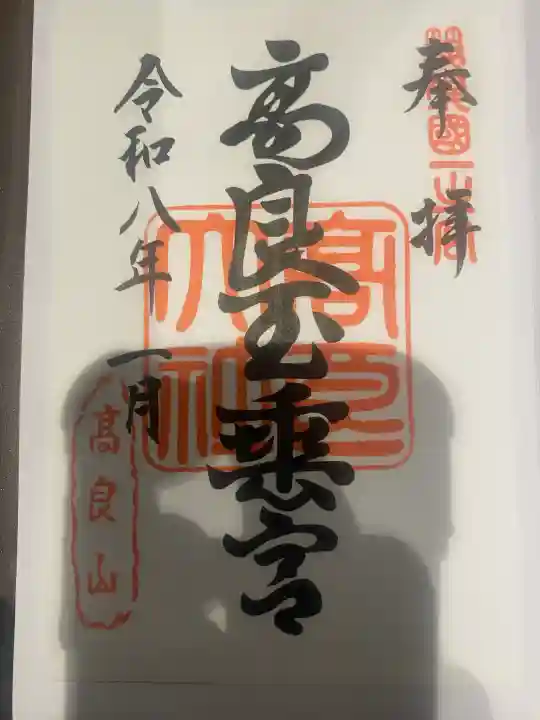 奉拝
筑後國一之宮
高良玉垂宮
髙良大社
令和八年一月
高良山